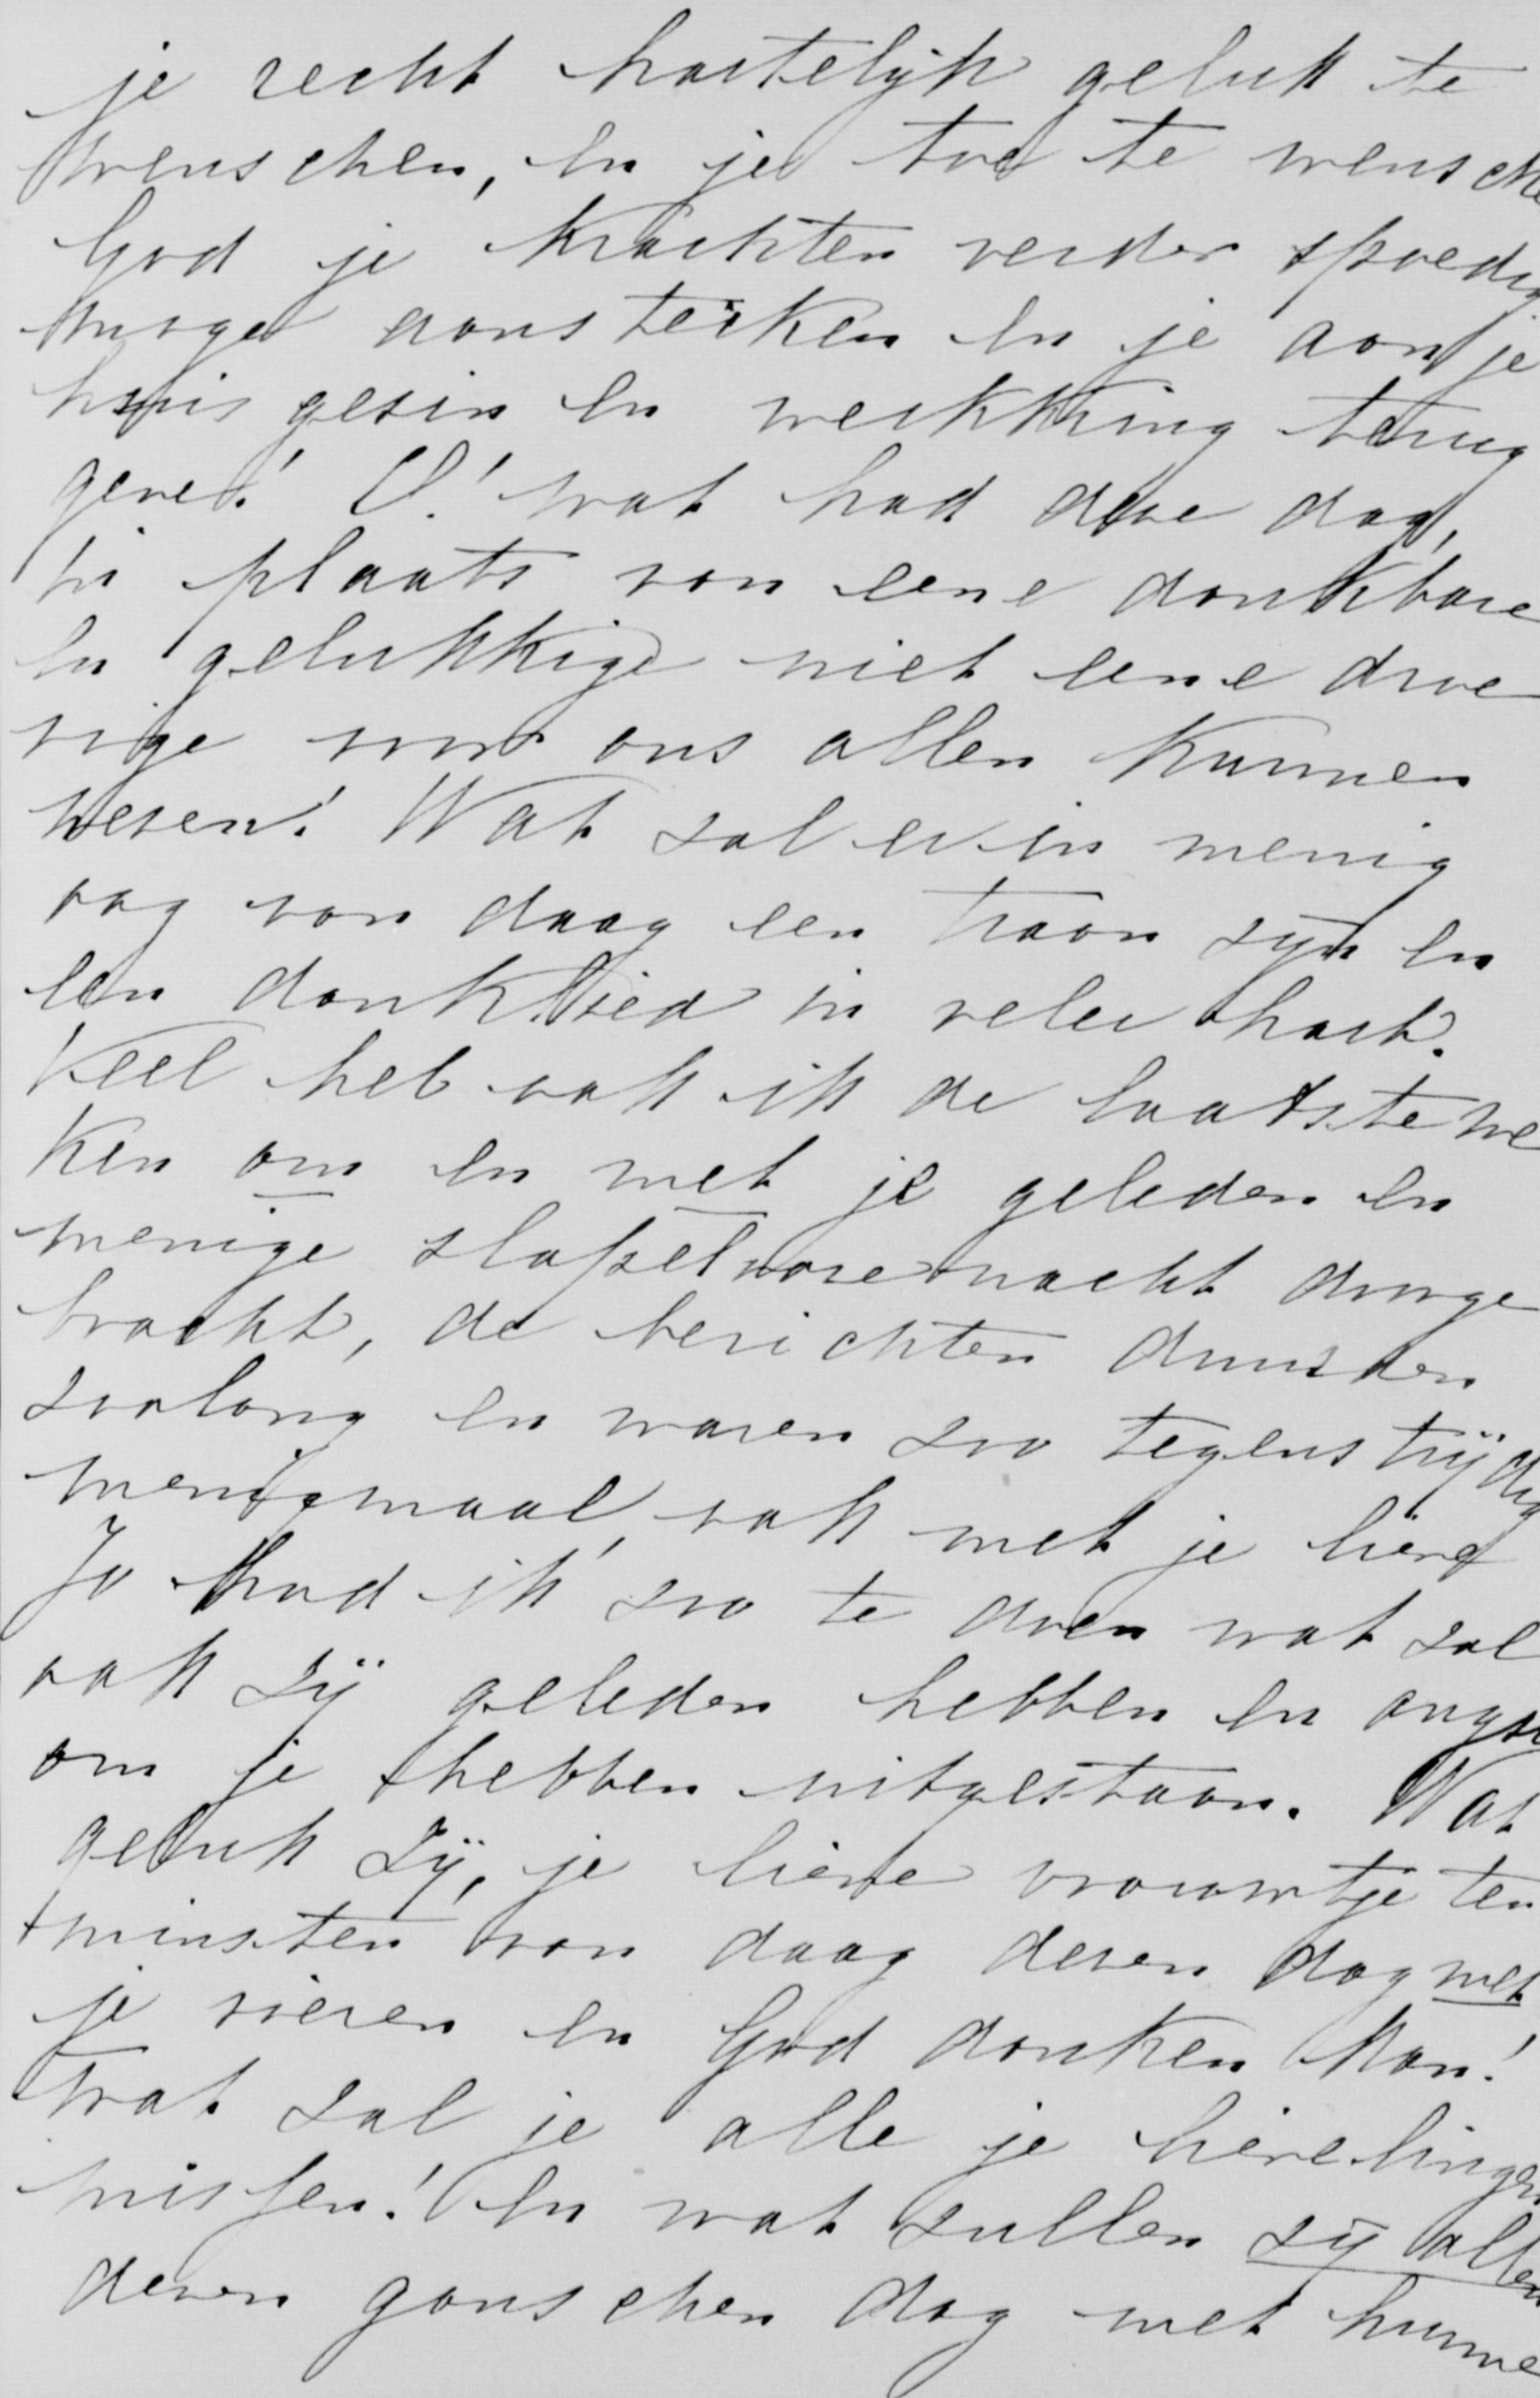 je recht hartelijk geluk te
wenschen, en je toe te wensche
God je krachten verder spoedig
moge aansterken en je aan je
huis gezin en werkkring terug
geve! O! wat had deze dag,
in plaats van eene dankbare
en gelukkige niet eene droe
vige voor ons allen kunnen
wezen! Wat zal er in menig
oog van daag een traan zijn en
een danklied in veler hart.
Veel heb ook ik de laatste we
ken om en met je geleden en
menige slapelooze nacht doorge
bracht, de berichten duurden
zoolang en waren zoo tegenstrijdig
menigmaal, ook met je lieve
Jo had ik zoo te doen wat zal
ook zij geleden hebben en angst
om je hebben uitgestaan. Wat
geluk zij, je lieve vrouwtje ten
minsten van daag dezen dag met
je vieren en God danken kan!
Wat zal je alle je lievelingen
missen! En wat zullen zij allen
dezen ganschen dag met hunne